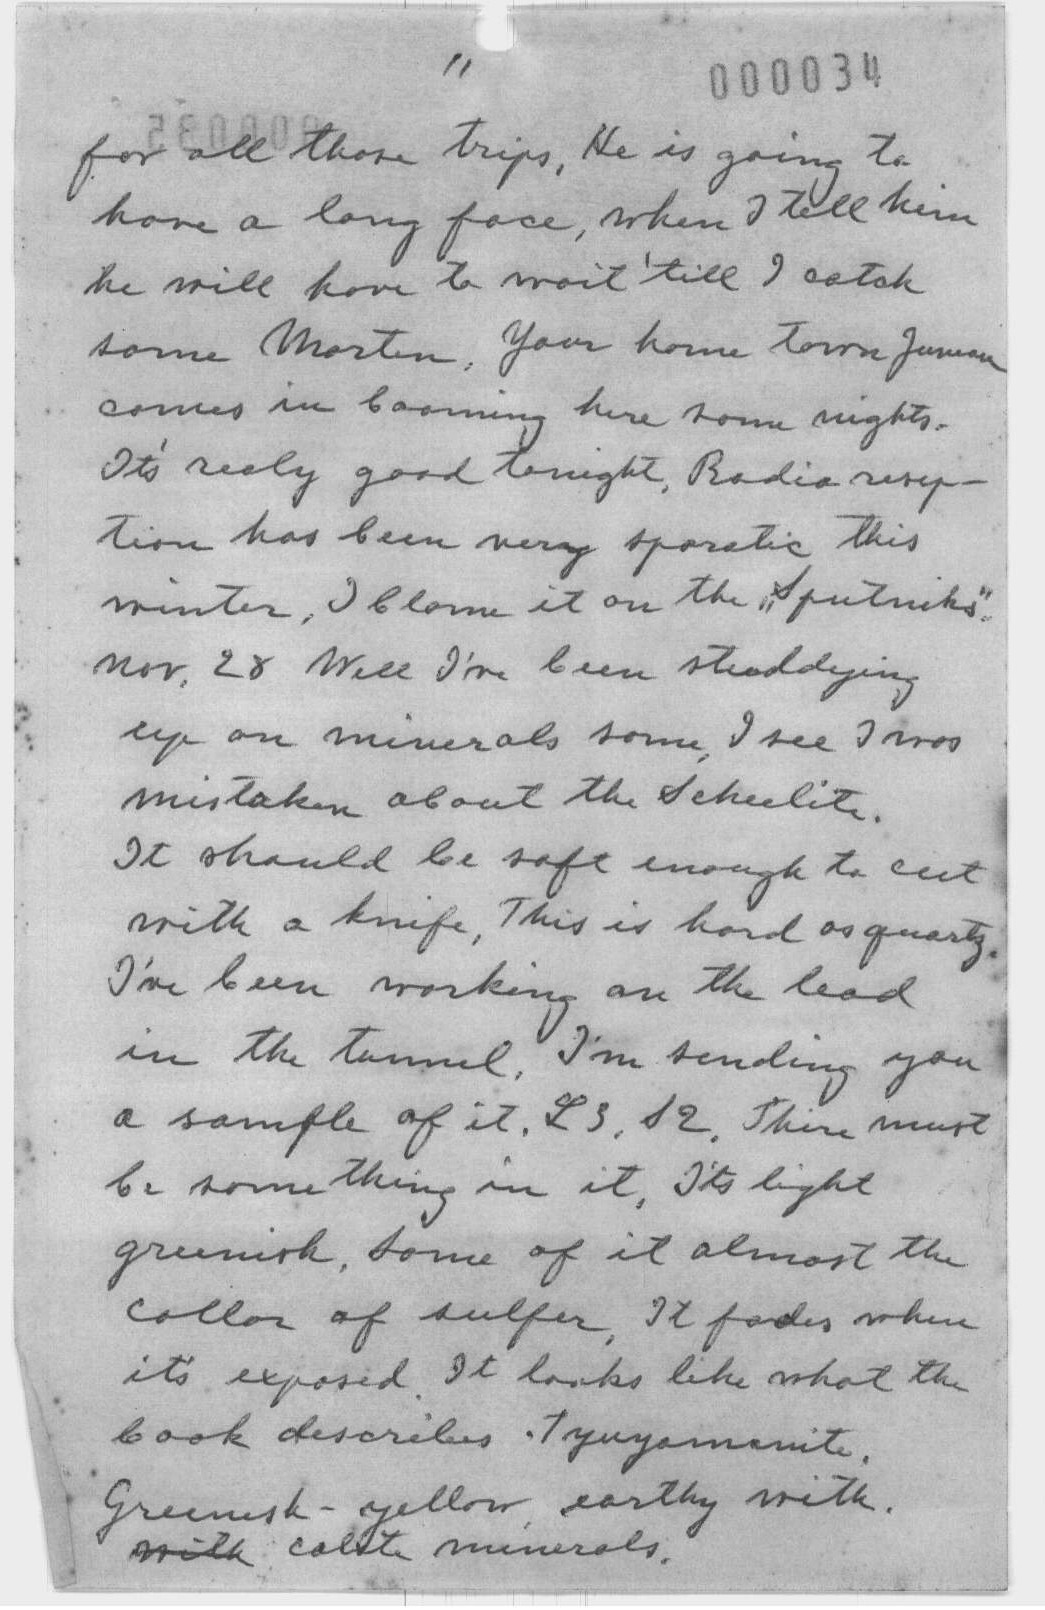 11
000034
000035
for all those trips, He is going to
have a long face, when I tell him
he will have to wait 'till I catch
some Marten. Your home town Juneau
comes in booming here some nights.
It's realy good tonight, Radio resep-
tion has been very sporatic this
winter, I blame it on the "Sputniks".
Nov. 28 Well I've been studdying
up on minerals some, I see I was
mistaken about the Scheelite.
It should be soft enough to cut
with a knife, This is hard as quartz.
I've been working on the lead
in the tunnel. I'm sending you
a sample of it. L3, S2. There must
be something in it, It's light
greenish, some of it almost the
collor of sulfer, It fades when
it's exposed. It looks like what the
book describes Tyuyamenite.
Greenish-yellow, earthy with.
with calsite minerals.